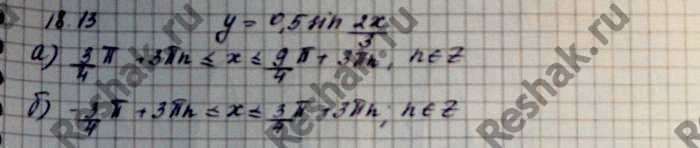 18.13 y = 0,5 sin 2x/3
а) 3/4 π + 3πn ≤ x ≤ 9/4 π + 3πn, n ∈ Z
б) -3/4 π + 3πn ≤ x ≤ 3/4 π + 3πn, n ∈ Z
Reshak.ru
Reshak.ru
Reshak.ru